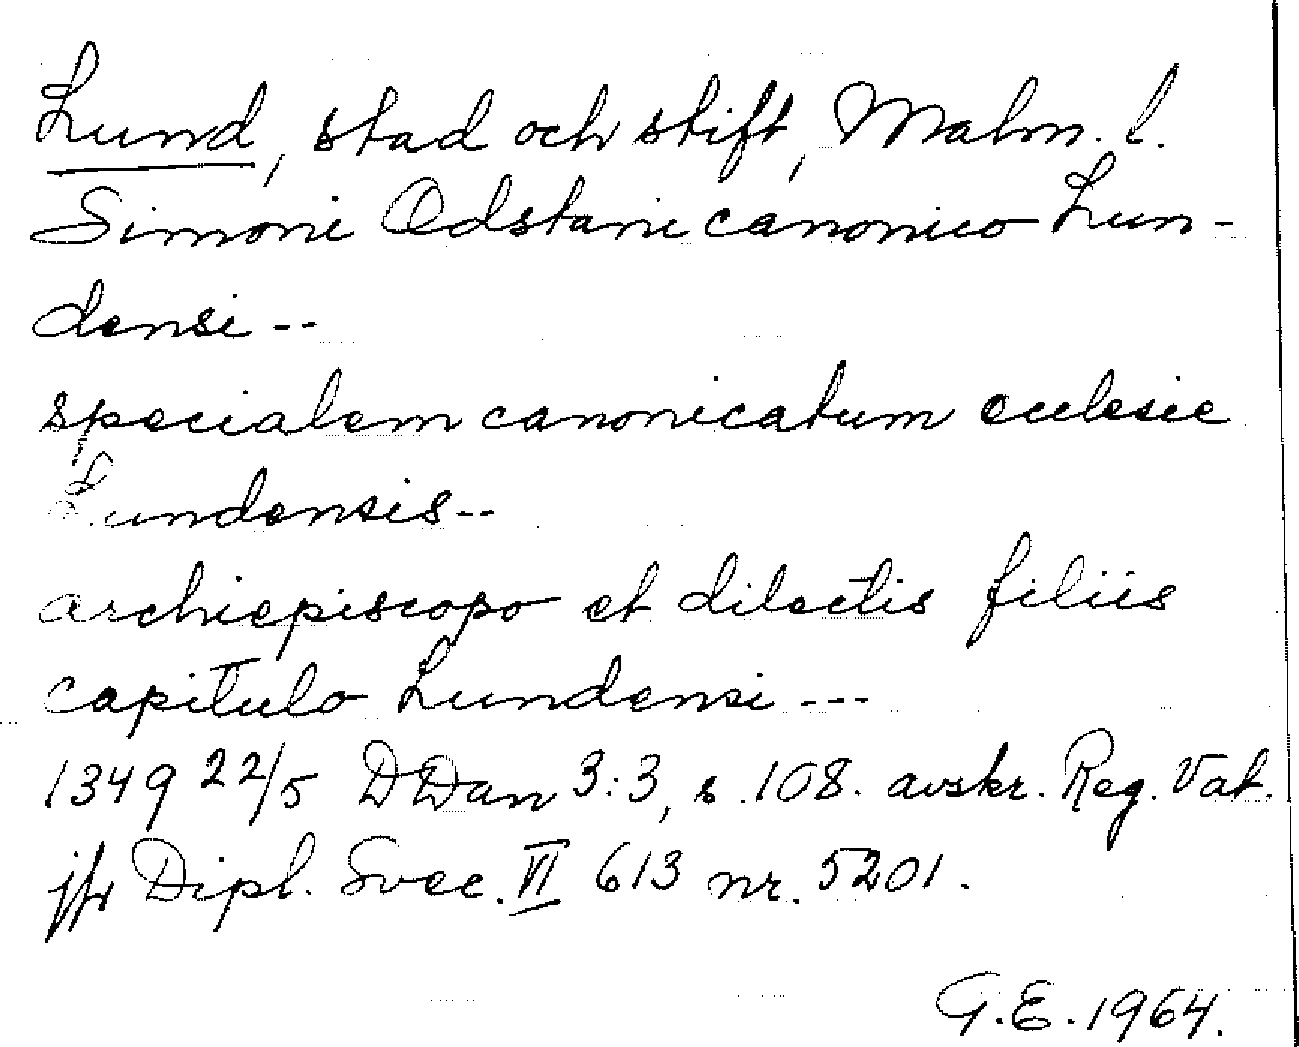 Lund, stad och stift, Malm. l.
Simoni Odstani canonico Lun-
densi --
specialem canonicatum ecclesie
Lundensis--
archiepiscopo et dilectis filiis
capitulo Lundensi ---
1349 22/5 DDan 3:3, s. 108. avskr. Reg. Vat.
jfr Dipl. Svec. VI 613 nr. 5201.
G.E. 1964.